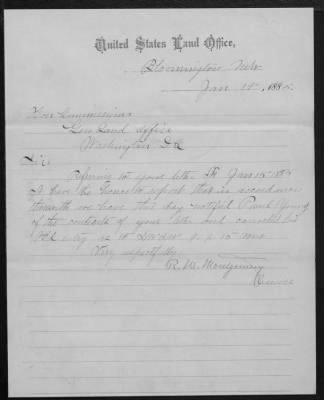 United States Land Office,
Bloomington Neb
Jan 19th, 1885.
Hon Commissioner
Gen Land Office
Washington D.C.
Sir:
Referring to your letter "G" Jany 15th 1885
I have the honor to report that in accordance
therewith we have this day notified Paul
of the contents of your letter and canceled his
Hd entry as to
Very respectfully
R. W. Montgomery
Receiver